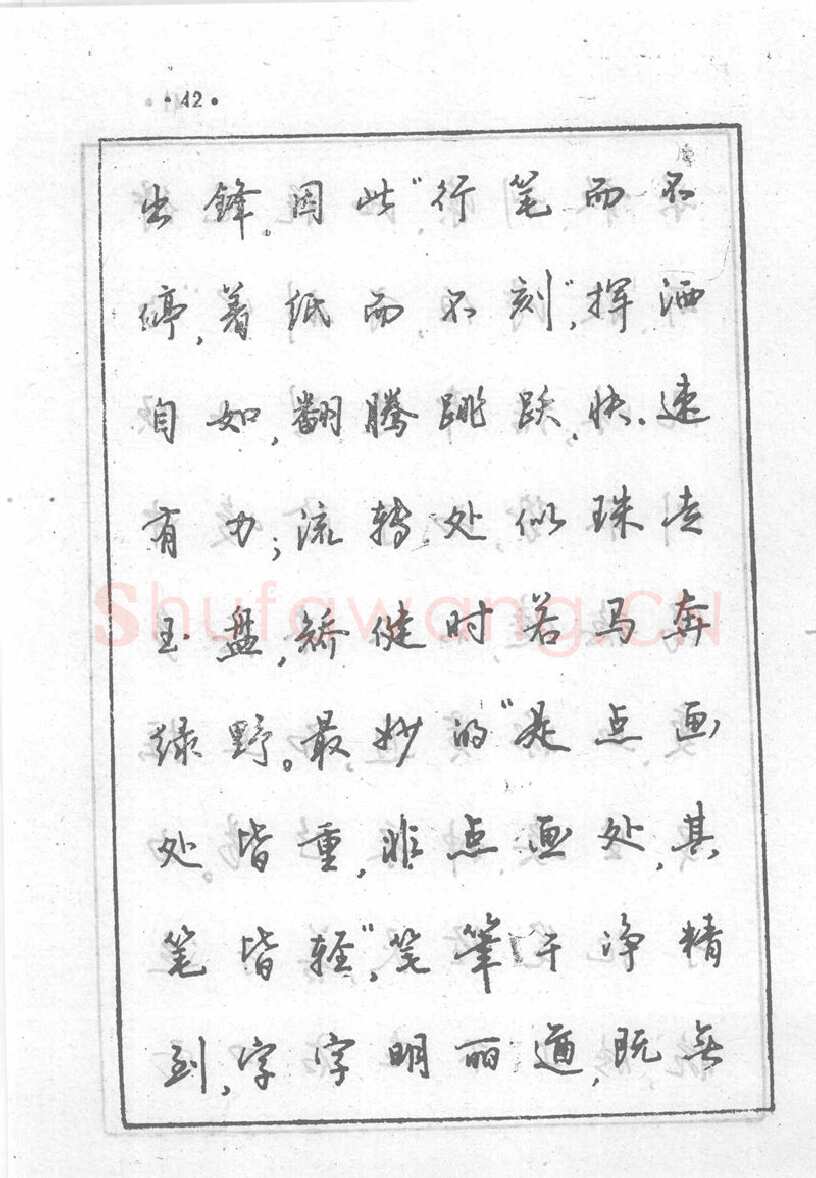 ·42·
出锋。因此“行笔而不
停，着纸而不刻”，挥洒
自如，翻腾跳跃，快速
有力；流转处似珠走
玉盘，矫健时若马奔
绿野。最妙的“是点画
处皆重，非点画处，其
笔皆轻”，笔筆干净精
到，字字明丽遒，既无
Shufawang.CN